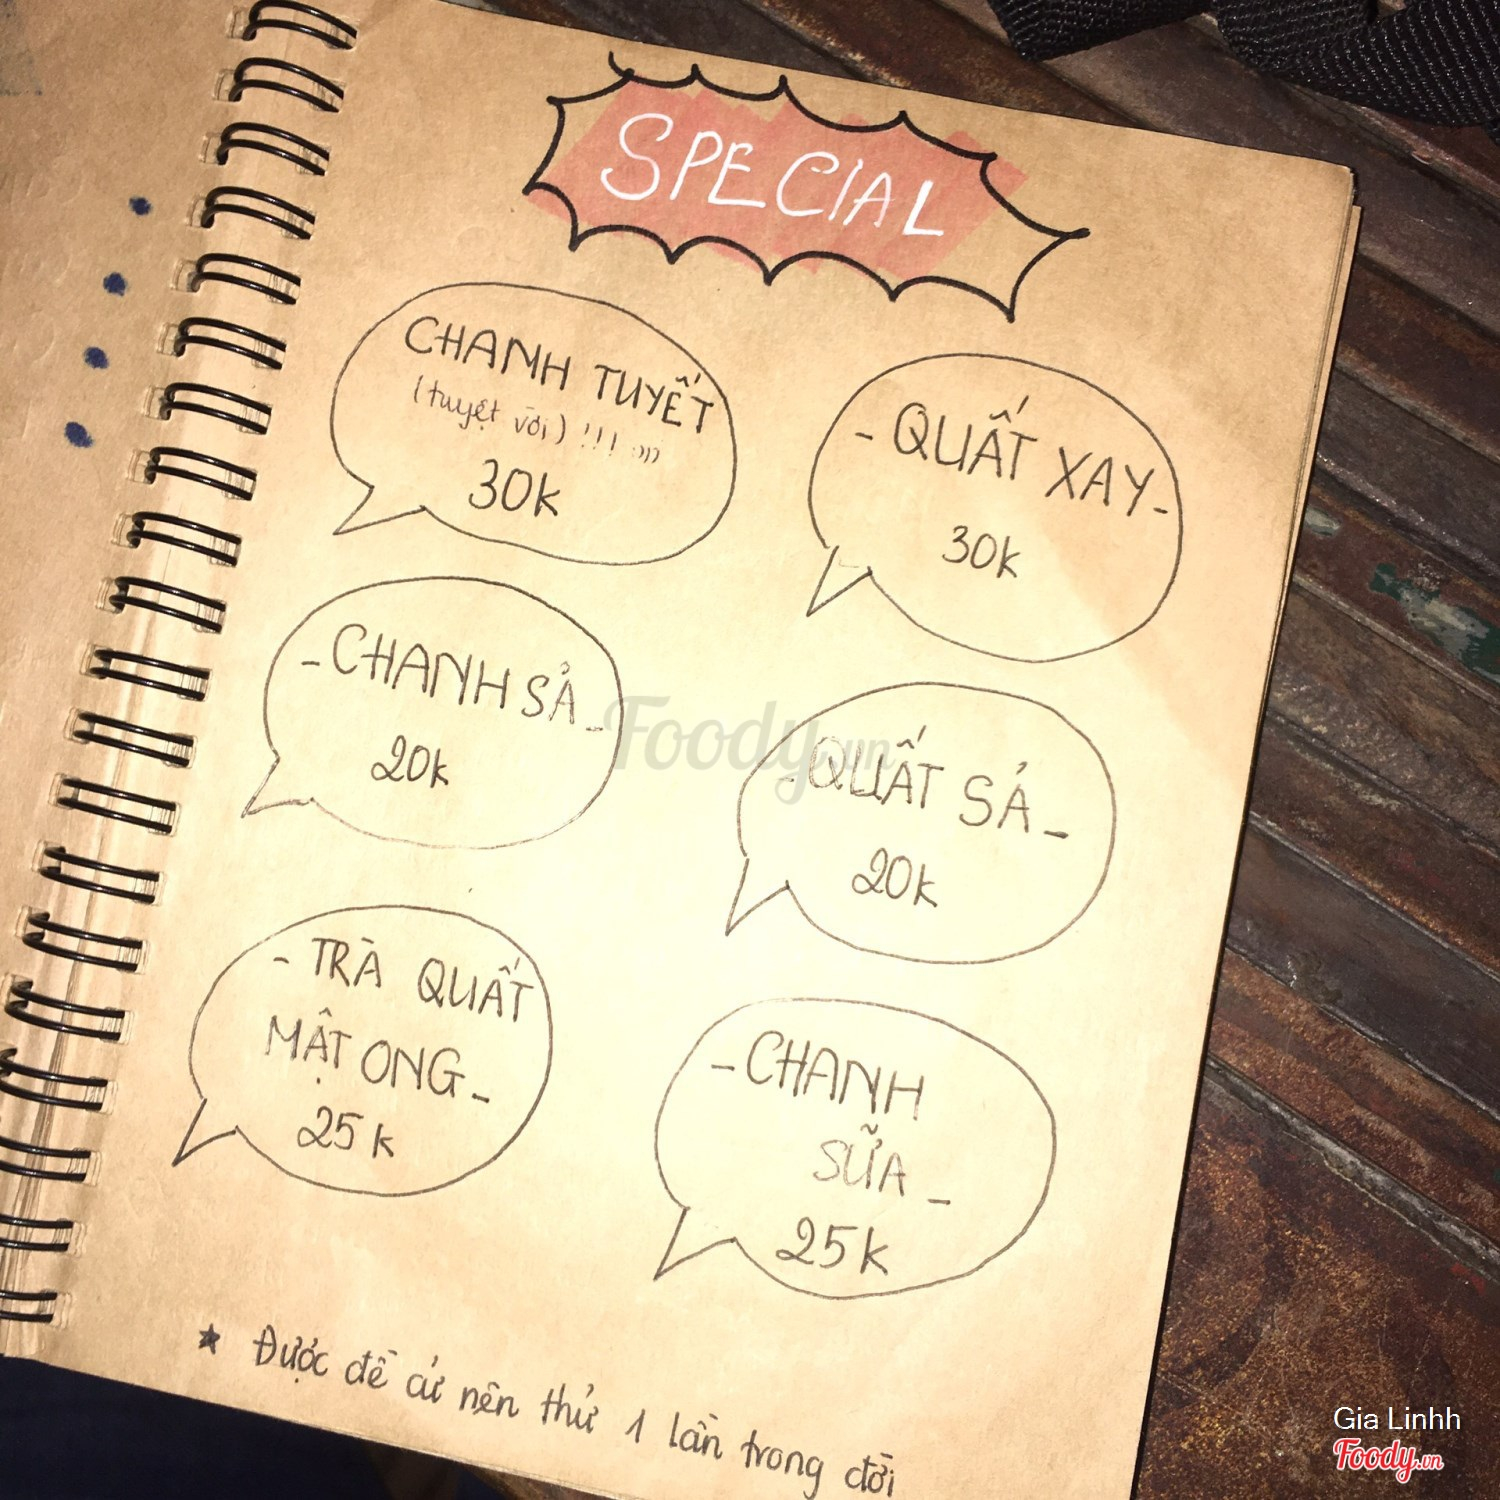 SPECIAL
CHANH TUYẾT
(tuyệt vời) !!! :)))
30k
- QUẤT XAY -
30k
- CHANH SẢ -
20k
- QUẤT SẢ -
20k
- TRÀ QUẤT
MẬT ONG -
25k
- CHANH
SỮA -
25k
★ Được đề cử nên thử 1 lần trong đời
Foody.vn
Gia Linhh
Foody.vn